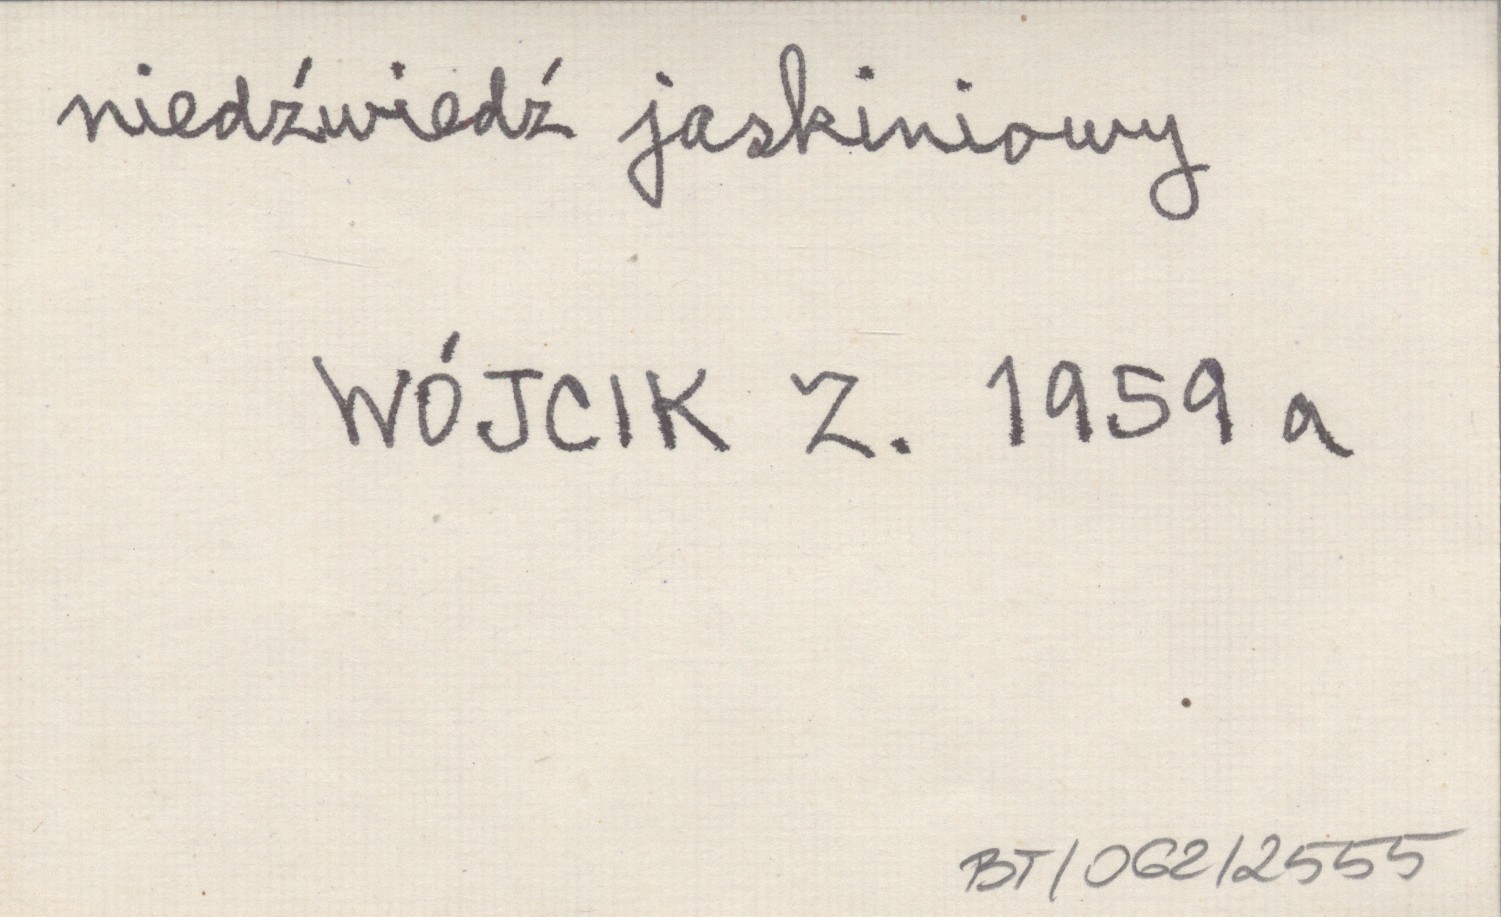 niedźwiedź jaskiniowy
WÓJCIK Z. 1959 a
BT/062/2555